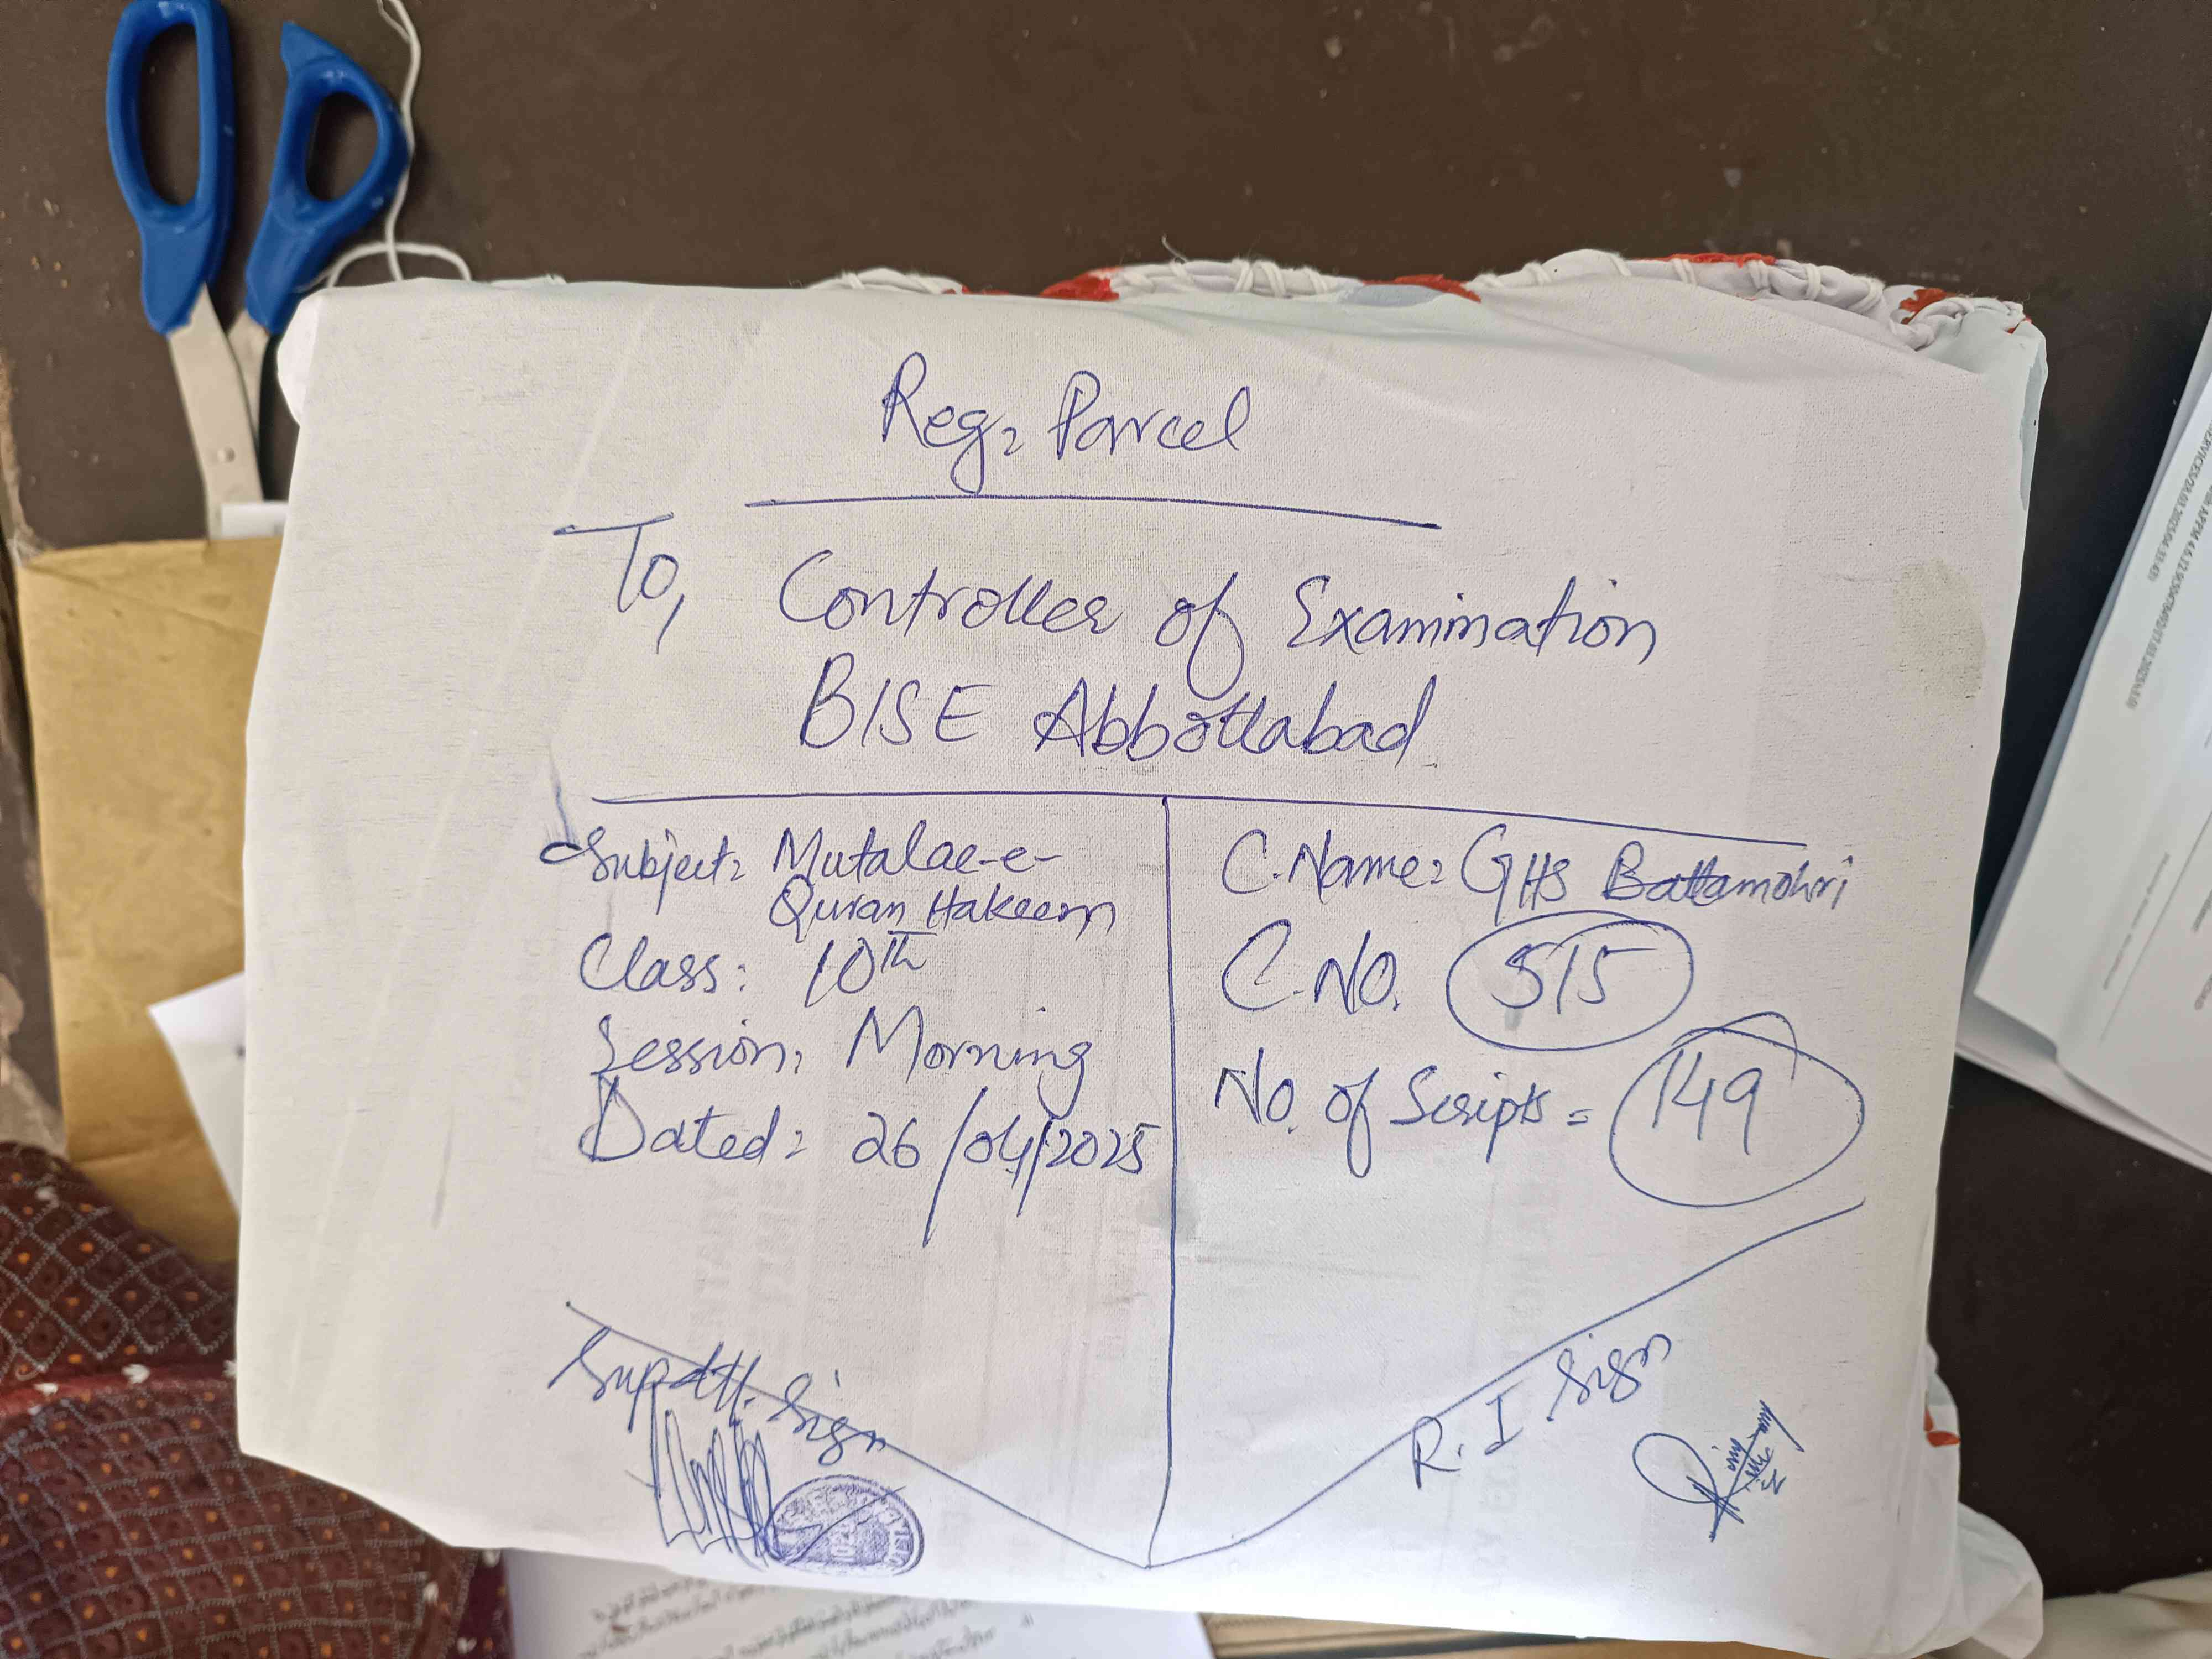 Reg: Parcel
To,
Controller of Examination
BISE Abbottabad.
Subject: Mutalae-e-
Quran Hakeem
Class: 10th
Session: Morning
Dated: 26/04/2025
C.Name: GHS Battamohri
C.NO. 515
No. of Scripts = 149
Supdtt. Sign
R. I Sign